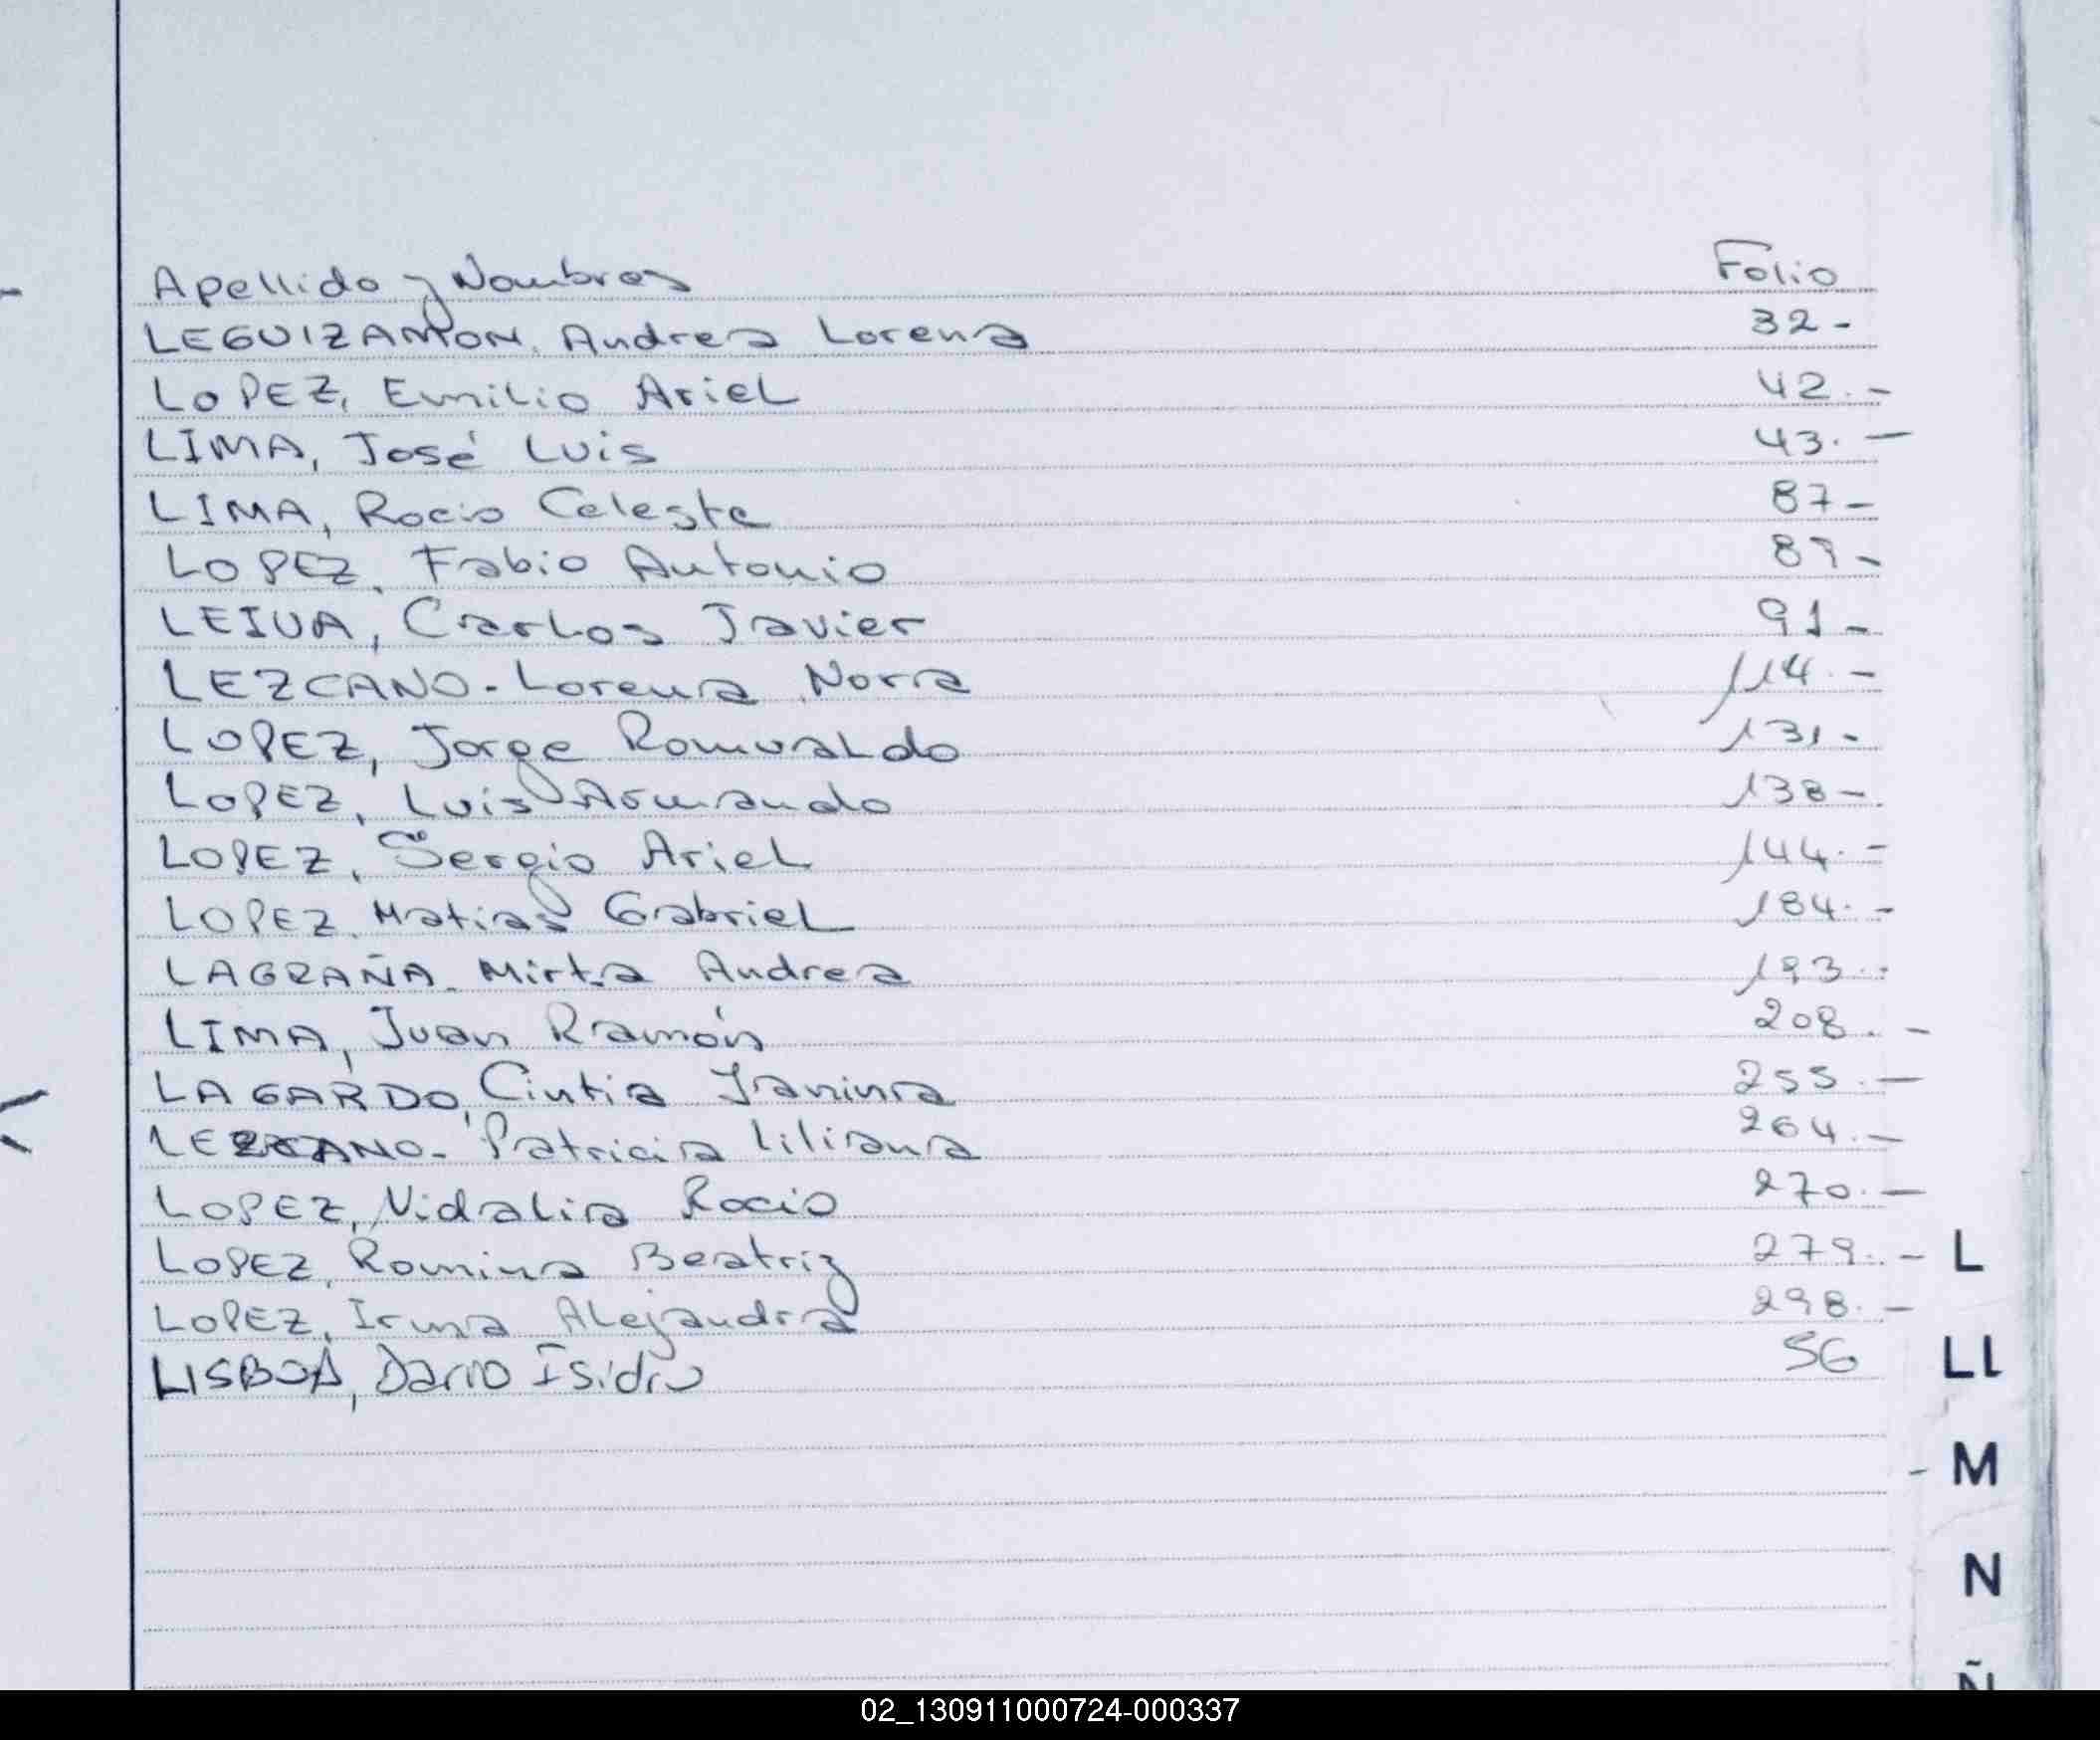 Apellido y Nombres Folio
LEGUIZAMON, Andrea Lorena 32-
LOPEZ, Emilio Ariel 42.-
LIMA, José Luis 43.-
LIMA, Rocio Celeste 87-
LOPEZ, Fabio Antonio 89-
LEIVA, Carlos Javier 91-
LEZCANO- Lorena Nora 114.-
LOPEZ, Jorge Romualdo 131-
LOPEZ, Luis Armando 138-
LOPEZ, Sergio Ariel 144.-
LOPEZ, Matias Gabriel 184.-
LAGRAÑA- Mirta Andrea 193.-
LIMA, Juan Ramón 208.-
LAGARDO, Cintia Janina 255.-
LEZCANO- Patricia Liliana 264.-
LOPEZ, Vidalia Rocio 270.-
LOPEZ, Romina Beatriz 279.-
LOPEZ, Irma Alejandra 298.-
LISBOA, Dario Isidro 56
L
LL
M
N
Ñ
02_130911000724-000337